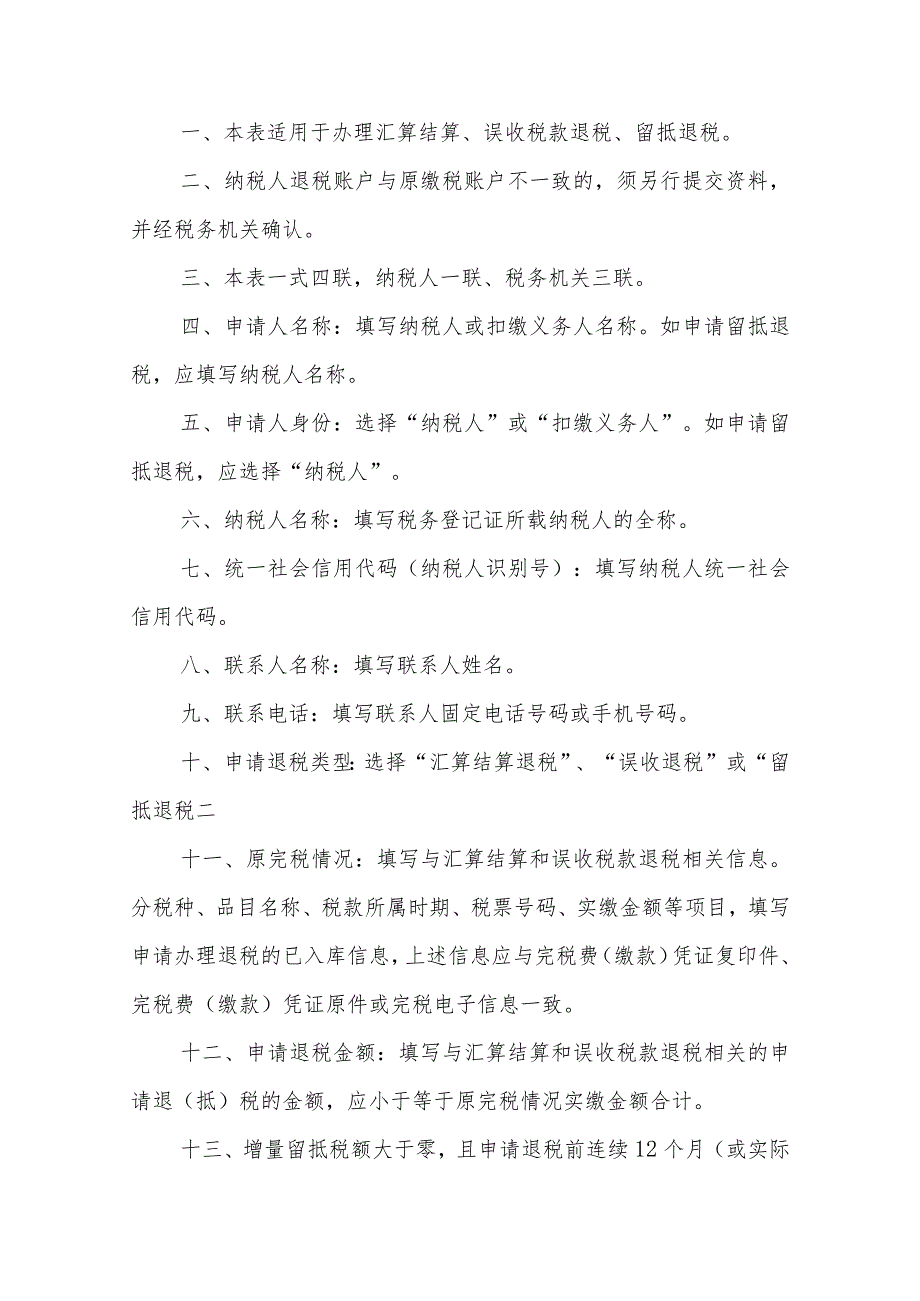 一、本表适用于办理汇算结算、误收税款退税、留抵退税。
二、纳税人退税账户与原缴税账户不一致的，须另行提交资料，
并经税务机关确认。
三、本表一式四联，纳税人一联、税务机关三联。
四、申请人名称：填写纳税人或扣缴义务人名称。如申请留抵退
税，应填写纳税人名称。
五、申请人身份：选择“纳税人”或“扣缴义务人”。如申请留
抵退税，应选择“纳税人”。
六、纳税人名称：填写税务登记证所载纳税人的全称。
七、统一社会信用代码（纳税人识别号）：填写纳税人统一社会
信用代码。
八、联系人名称：填写联系人姓名。
九、联系电话：填写联系人固定电话号码或手机号码。
十、申请退税类型：选择“汇算结算退税”、“误收退税”或“留
抵退税二
十一、原完税情况：填写与汇算结算和误收税款退税相关信息。
分税种、品目名称、税款所属时期、税票号码、实缴金额等项目，填写
申请办理退税的已入库信息，上述信息应与完税费（缴款）凭证复印件、
完税费（缴款）凭证原件或完税电子信息一致。
十二、申请退税金额：填写与汇算结算和误收税款退税相关的申
请退（抵）税的金额，应小于等于原完税情况实缴金额合计。
十三、增量留抵税额大于零，且申请退税前连续12个月（或实际